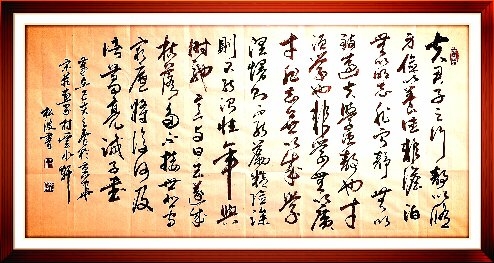 夫君子之行靜以修
身儉以養德非澹泊
無以明志非寧靜無以
致遠夫學須靜也才
須學也非學無以廣
才非志無以成學
淫慢則不能勵精險躁
則不能治性年與
時馳意與日去遂成
枯落多不接世悲守
窮廬將復何及
諸葛亮誡子書
松波書